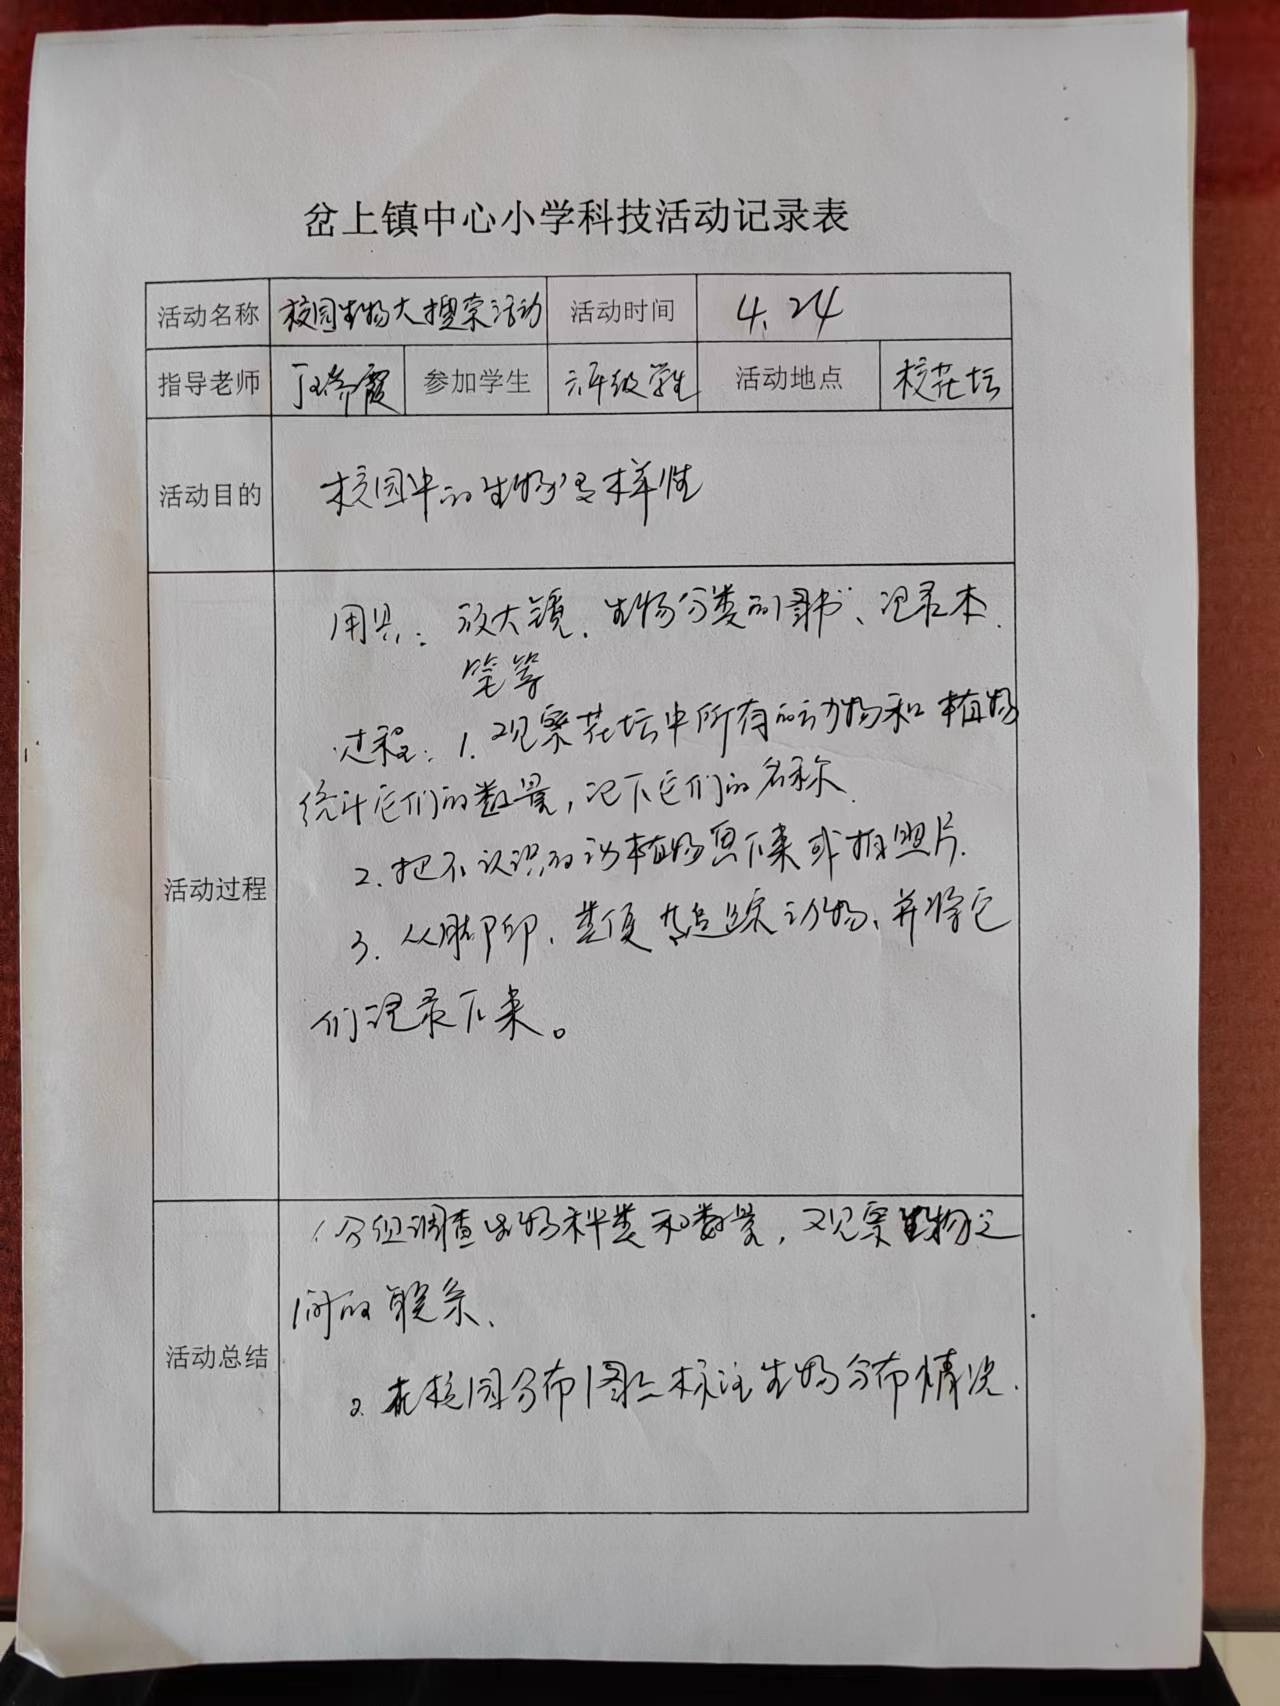 岔上镇中心小学科技活动记录表
活动名称 校园生物大搜索活动 活动时间 4.24
指导老师 霞 参加学生 六年级学生 活动地点 校花坛
活动目的 校园中的生物多样性
用具：放大镜、生物分类的图书、记录本、
笔等
过程：1.观察花坛中所有的动物和植物
统计它们的数量，记下它们的名称.
2.把不认识的动植物画下来或拍照片.
活动过程
3.从脚印、粪便等追踪动物、并将它
们记录下来。
1分组调查生物种类和数量，观察生物之
间的联系、
活动总结
2.在校园分布图上标注生物分布情况.